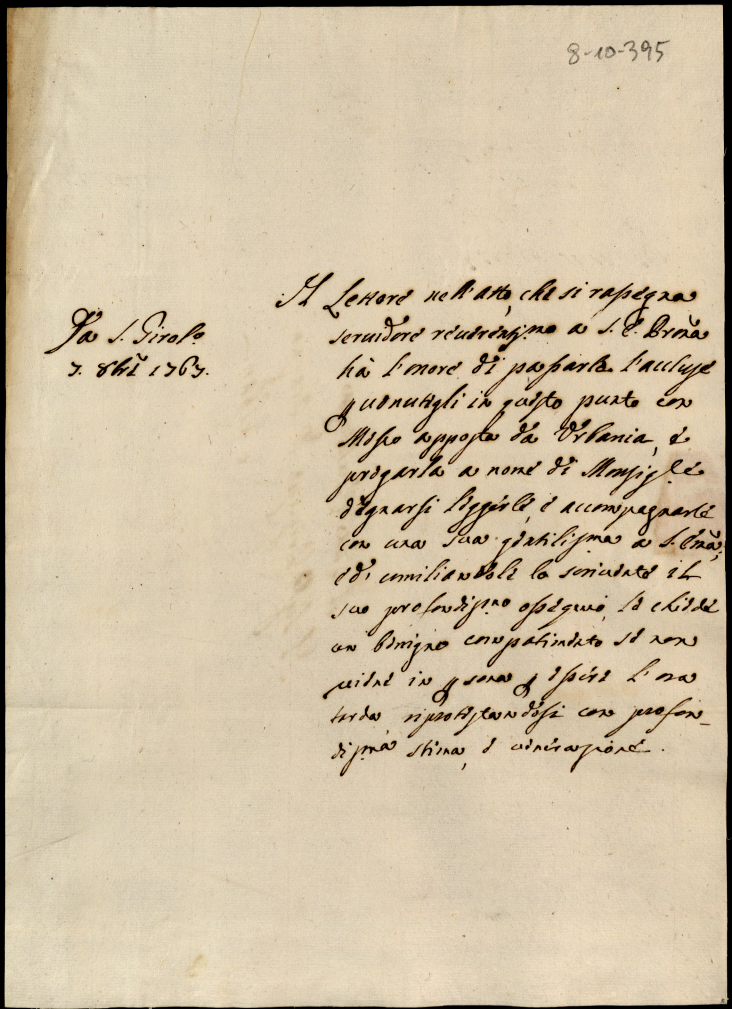 8-10-395
Da S. Girol.o
7. 8bre 1767.
Il Lettore nell'atto, che si rassegna
servidore reverentissmo a S. E. Prõna
hà l'onore di passarle l'accluse
pvenutegli in questo punto con
Messo apposta da Urbania, e
pregarla a nome di Monsig.e
degnarsi leggerle, e accompagnarle
con una sua gentilissma a S. Emã,
ed umiliandole lo scrivente il
suo profondissmo ossequio, le chiede
un benigno compatimento se non
viene in psona p essere l'ora
tarda riprotestandosi con profon-
dissmã stima, e venerazione.